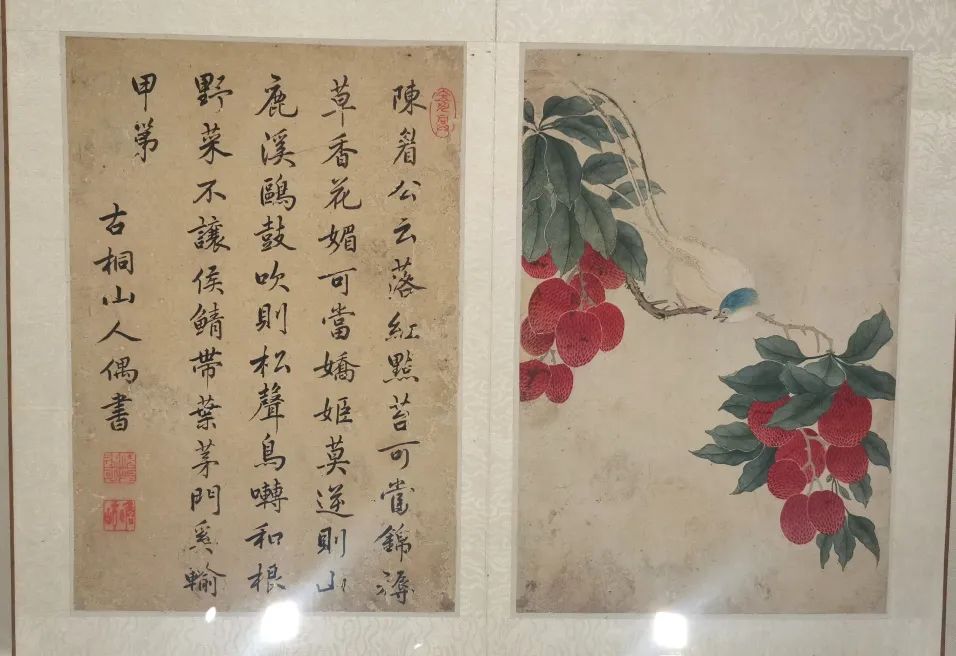 陳睂公云落紅點苔可當錦褥
草香花媚可當嬌姬莫逆則山
鹿溪鷗鼓吹則松聲鳥囀和根
野菜不讓侯鯖帶葉茅門奚輸
甲第
古桐山人偶書